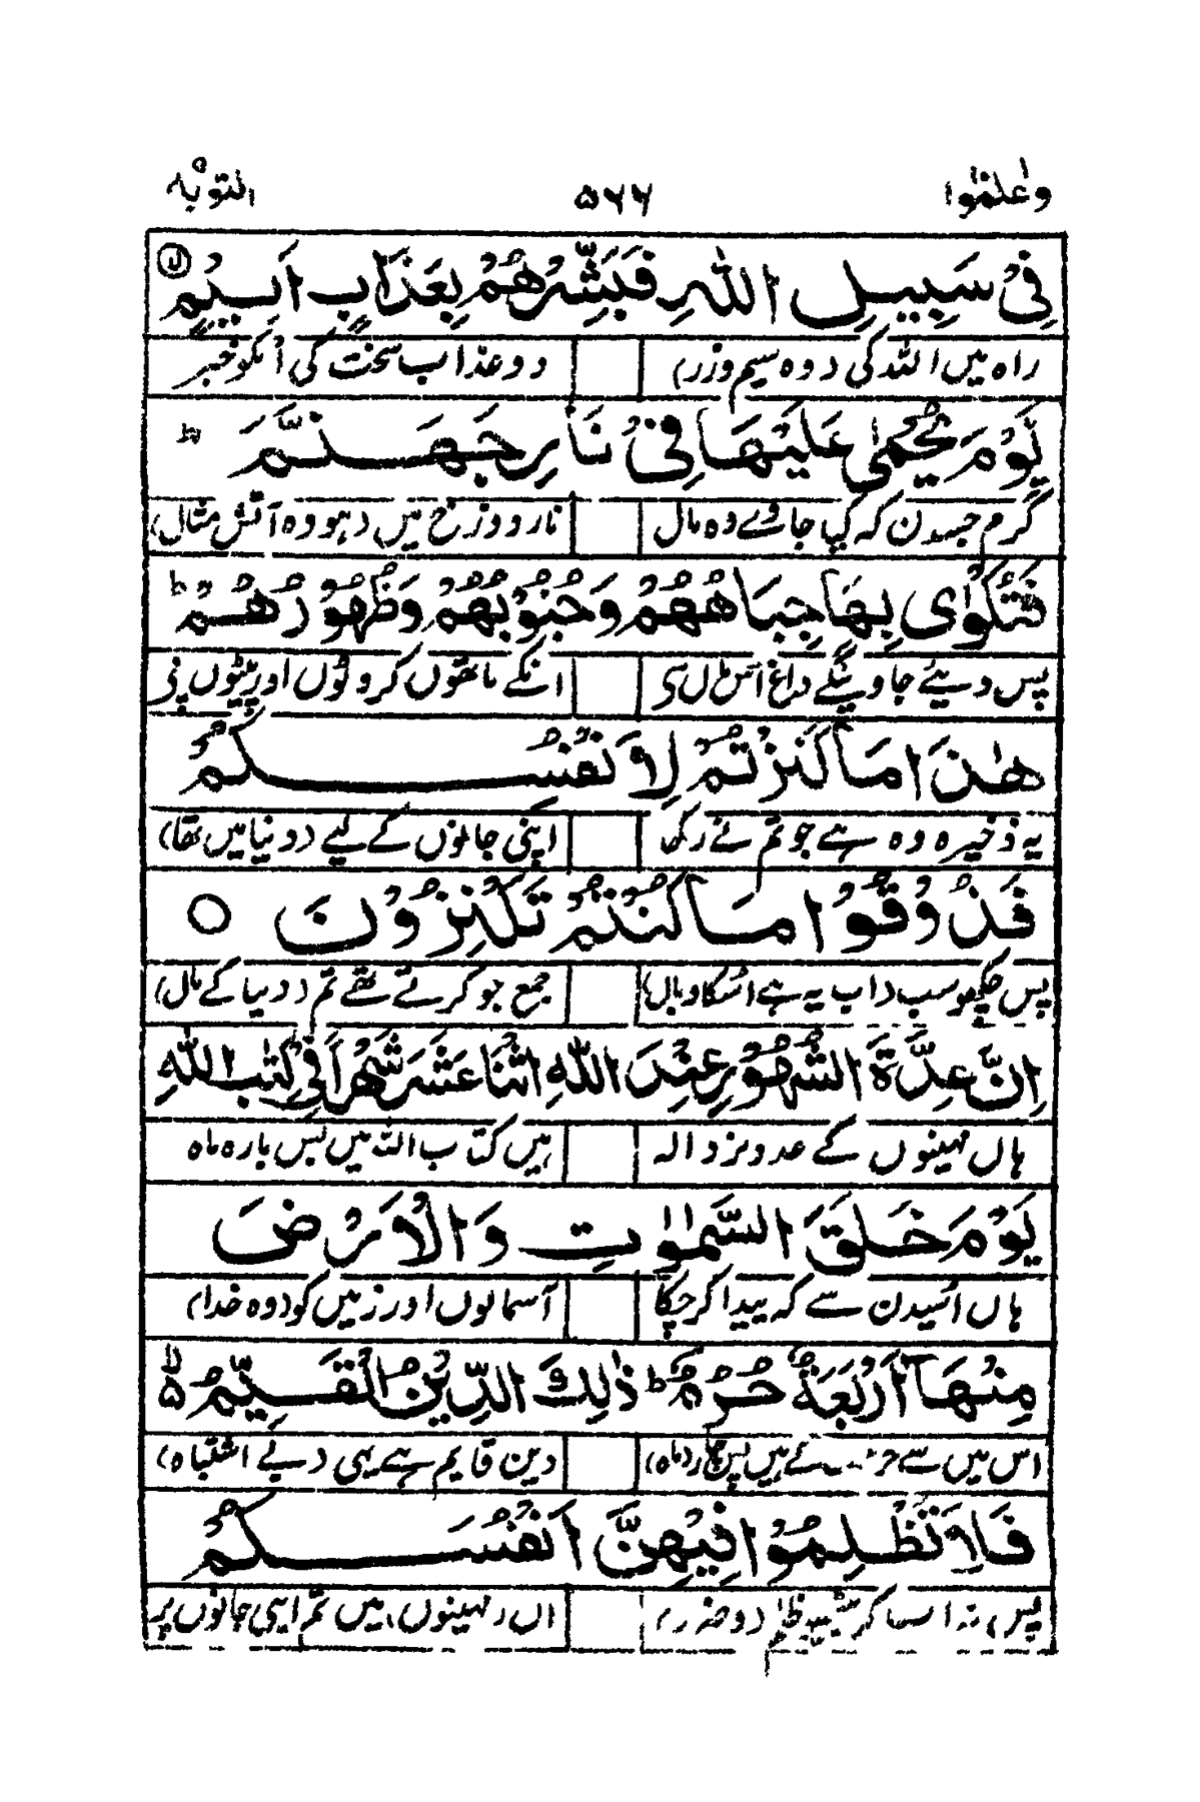 واعلموا ۵۶۶ التوبه
فِیْ سَبِیْلِ اللّٰهِ فَبَشِّرْهُمْ بِعَذَابٍ اَلِیْمٍ
راہ میں اللہ کی دوہ سیم وزر) دو عذاب سخت کی انکو خبر
یَوْمَ یُحْمٰی عَلَیْهَا فِیْ نَارِ جَهَنَّمَ ط
گرم جسدن کہ کیا جاوے وہ مال نار دوزخ میں (ہو وہ آتش مثال)
فَتُكْوٰی بِهَا جِبَاهُهُمْ وَجُنُوْبُهُمْ وَظُهُوْرُهُمْ ط
پس دیئے جاوینگے داغ اس مال سی انکے ماتھوں کروٹوں اور پیٹھوں پی
هٰذَا مَا كَنَزْتُمْ لِاَنْفُسِكُمْ
یہ ذخیرہ وہ ہے جو تم نے رکھا اپنی جانوں کے لیے (دنیا میں تھا)
فَذُوْقُوْا مَا كُنْتُمْ تَكْنِزُوْنَ ○
پس چکھو سب (اب یہ ہے اسکا وبال) جمع جو کرتے تھے تم (دنیا کے مال)
اِنَّ عِدَّةَ الشُّهُوْرِ عِنْدَ اللّٰهِ اثْنَا عَشَرَ شَهْرًا فِیْ كِتٰبِ اللّٰهِ
ہاں مہینوں کے عدد نزد الہ ہیں کتاب اللہ میں بس بارہ ماہ
یَوْمَ خَلَقَ السَّمٰوٰتِ وَالْاَرْضَ
ہاں اسیدن سے کہ پیدا کر چکا آسمانوں اور زمیں کو (وہ خدا)
مِنْهَا اَرْبَعَةٌ حُرُمٌ ط ذٰلِكَ الدِّیْنُ الْقَیِّمُ
اس میں سے کے ہیں پس چار (ماہ) دین قایم ہے یہی (بے اشتباہ)
فَلَا تَظْلِمُوْا فِیْهِنَّ اَنْفُسَكُمْ
پس نہ کر ظلم ان (مہینوں) میں تم اپنی جانوں پر